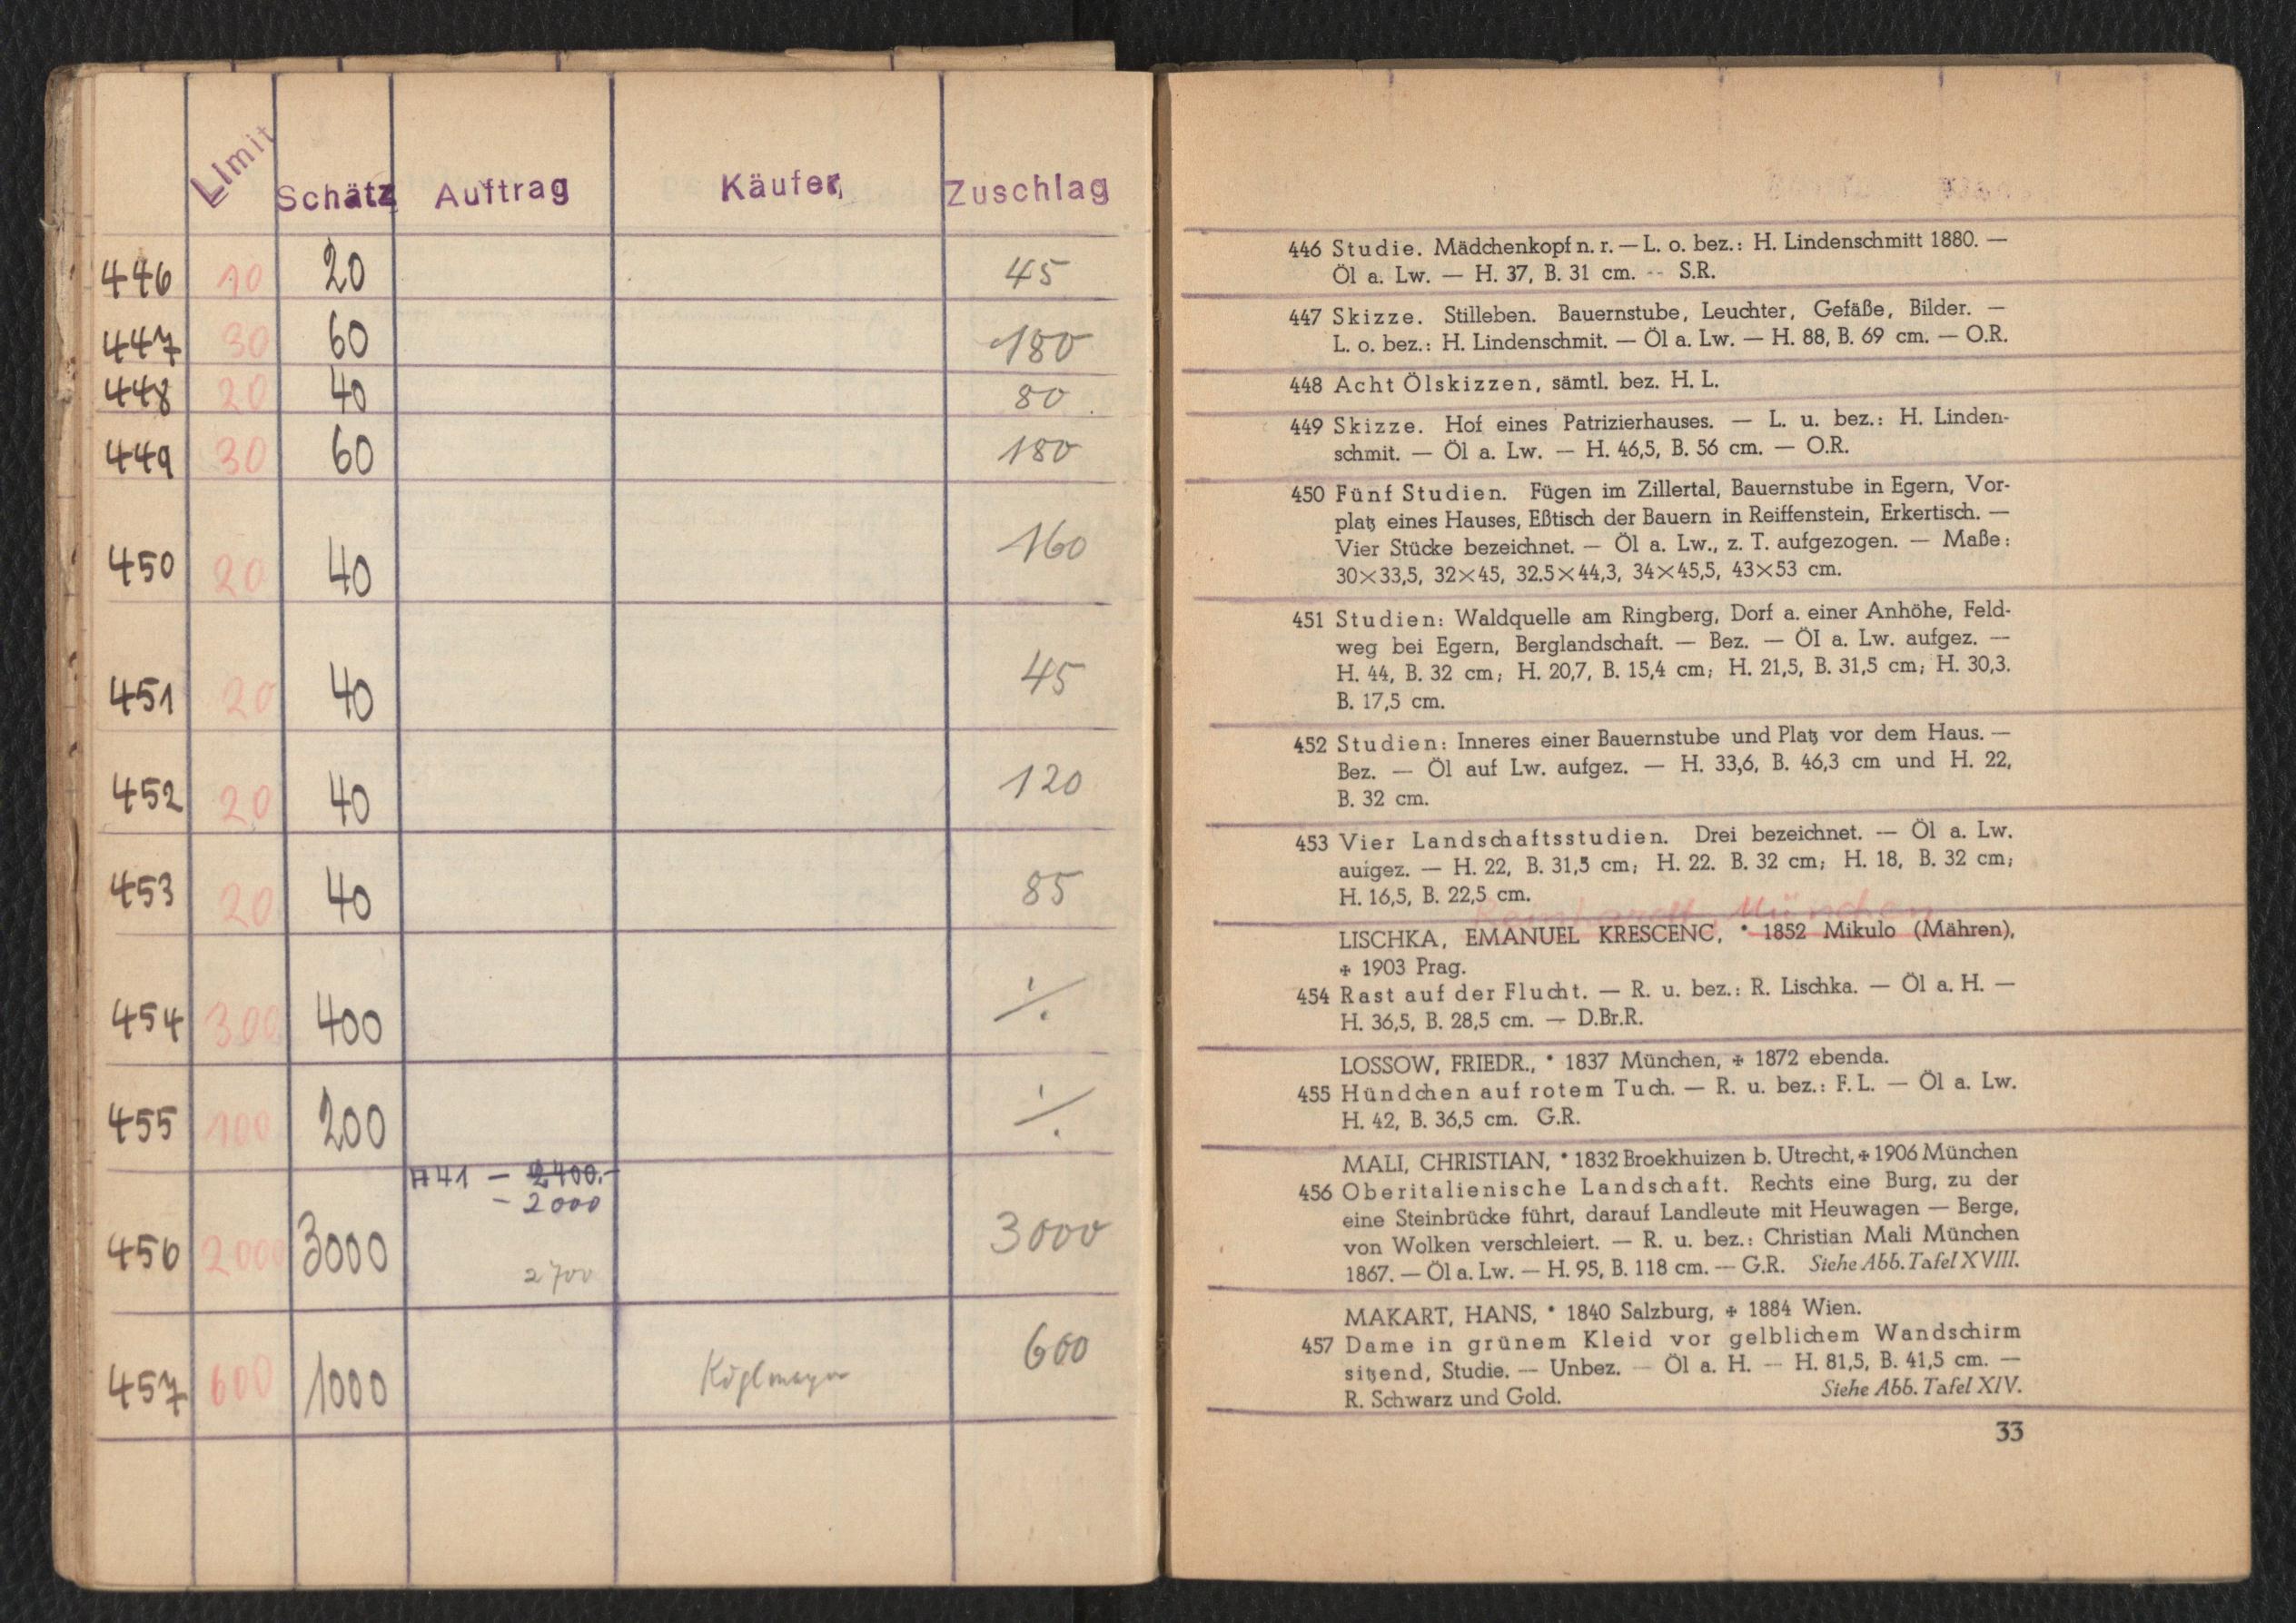 Limit Schätz Auftrag Käufer Zuschlag
446 10 20 45
447 30 60 180
448 20 40 80
449 30 60 180
450 20 40 160
451 20 40 45
452 20 40 120
453 20 40 85
454 300 400 ·/.
455 100 200 ·/.
H41 – 2400.–
– 2000
456 2000 3000 3000
2700
457 600 1000 Köglmayr 600
446 Studie. Mädchenkopf n. r. — L. o. bez.: H. Lindenschmitt 1880. —
Öl a. Lw. — H. 37, B. 31 cm. -- S.R.
447 Skizze. Stilleben. Bauernstube, Leuchter, Gefäße, Bilder. —
L. o. bez.: H. Lindenschmit. — Öl a. Lw. — H. 88, B. 69 cm. — O.R.
448 Acht Ölskizzen, sämtl. bez. H. L.
449 Skizze. Hof eines Patrizierhauses. — L. u. bez.: H. Linden-
schmit. — Öl a. Lw. — H. 46,5, B. 56 cm. — O.R.
450 Fünf Studien. Fügen im Zillertal, Bauernstube in Egern, Vor-
platz eines Hauses, Eßtisch der Bauern in Reiffenstein, Erkertisch. —
Vier Stücke bezeichnet. — Öl a. Lw., z. T. aufgezogen. — Maße:
30×33,5, 32×45, 32.5×44,3, 34×45,5, 43×53 cm.
451 Studien: Waldquelle am Ringberg, Dorf a. einer Anhöhe, Feld-
weg bei Egern, Berglandschaft. — Bez. — Öl a. Lw. aufgez. —
H. 44, B. 32 cm; H. 20,7, B. 15,4 cm; H. 21,5, B. 31,5 cm; H. 30,3.
B. 17,5 cm.
452 Studien: Inneres einer Bauernstube und Platz vor dem Haus. —
Bez. — Öl auf Lw. aufgez. — H. 33,6, B. 46,3 cm und H. 22,
B. 32 cm.
453 Vier Landschaftsstudien. Drei bezeichnet. — Öl a. Lw.
aufgez. — H. 22, B. 31,5 cm; H. 22. B. 32 cm; H. 18, B. 32 cm;
H. 16,5, B. 22,5 cm.
München
LISCHKA, EMANUEL KRESCENC, * 1852 Mikulo (Mähren),
✠ 1903 Prag.
454 Rast auf der Flucht. — R. u. bez.: R. Lischka. — Öl a. H. —
H. 36,5, B. 28,5 cm. — D.Br.R.
LOSSOW, FRIEDR., * 1837 München, ✠ 1872 ebenda.
455 Hündchen auf rotem Tuch. — R. u. bez.: F. L. — Öl a. Lw.
H. 42, B. 36,5 cm. G.R.
MALI, CHRISTIAN, * 1832 Broekhuizen b. Utrecht, ✠ 1906 München
456 Oberitalienische Landschaft. Rechts eine Burg, zu der
eine Steinbrücke führt, darauf Landleute mit Heuwagen — Berge,
von Wolken verschleiert. — R. u. bez.: Christian Mali München
1867. — Öl a. Lw. — H. 95, B. 118 cm. — G.R. Siehe Abb. Tafel XVIII.
MAKART, HANS, * 1840 Salzburg, ✠ 1884 Wien.
457 Dame in grünem Kleid vor gelblichem Wandschirm
sitzend, Studie. — Unbez. — Öl a. H. — H. 81,5, B. 41,5 cm. —
R. Schwarz und Gold. Siehe Abb. Tafel XIV.
33